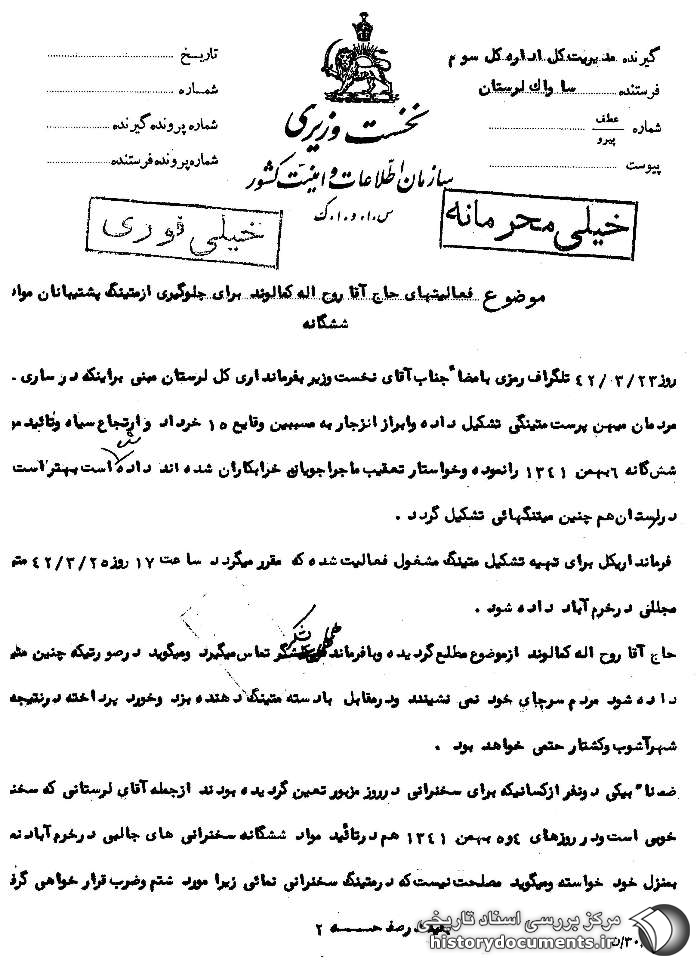 گیرنده مدیریت کل اداره کل سوم
فرستنده ساواک لرستان
شماره عطف
پیرو
پیوست
نخست وزیری
سازمان اطلاعات و امنیت کشور
س.ا.و.ا.ک
تاریخ
شماره
شماره پرونده گیرنده
شماره پرونده فرستنده
خیلی محرمانه
خیلی فوری
موضوع فعالیتهای حاج آقا روح اله کمالوند برای جلوگیری ازمتینگ پشتیبانان مواد
ششگانه
روز ۴۲/۳/۲۳ تلگراف رمزی بامضا" جناب آقای نخست وزیر بفرمانداری کل لرستان مبنی براینکه در ساری
مردمان میهن پرست متینگی تشکیل داده وابراز انزجار به مسببین وقایع ۱۵ خرداد و ارتجاع سیاه وتائید
شش گانه ۶ بهمن ۱۳۴۱ رانموده وخواستار تعقیب ماجراجویان خرابکاران شده اند داده شده است بهتر است
درلرستان هم چنین میتنگهائی تشکیل گردد .
فرمانداریکل برای تهیه تشکیل متینگ مشغول فعالیت شده که مقرر میگردد ساعت ۱۷ روز ۴۲/۳/۲۵
مجللی درخرم آباد داده شود .
حاج آقا روح اله کمالوند ازموضوع مطلع گردیده وبافرمانده لشگر تماس میگیرد ومیگوید درصورتیکه چنین
داده شود مردم سرجای خود نمی نشینند ودرمقابل بادسته متینگ دهنده بزد وخورد پرداخته درنتیجه
شهرآشوب وکشتار حتمی خواهد بود .
ضمنا" بیکی دونفر ازکسانیکه برای سخنرانی درروز مزبور تعین گردیده بودند ازجمله آقای لرستانی که
خوبی است ودر روزهای ۴و۵ بهمن ۱۳۴۱ هم درتائید مواد ششگانه سخنرانی های جالبی درخرم آباد
بمنزل خود خواسته ومیگوید مصلحت نیست که درمتینگ سخنرانی نمائی زیرا مورد شتم وضرب قرار خواهی
بقیه درصفحه ۲
مرکز بررسی اسناد تاریخی
historydocuments.ir